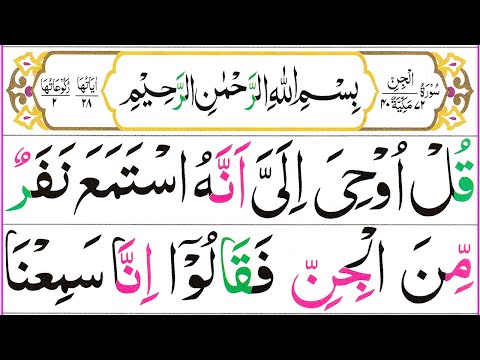 سُورَةُ الْجِنِّ ٧٢ مَكِّيَّةٌ ٤٠
بِسْمِ اللهِ الرَّحْمٰنِ الرَّحِيْمِ
اٰيَاتُهَا ٢٨ رُكُوْعَاتُهَا ٢
قُلْ اُوْحِيَ اِلَيَّ اَنَّهُ اسْتَمَعَ نَفَرٌ
مِّنَ الْجِنِّ فَقَالُوْۤا اِنَّا سَمِعْنَا